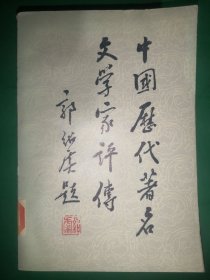 中國歷代著名
文学家评傳
郭绍虞题